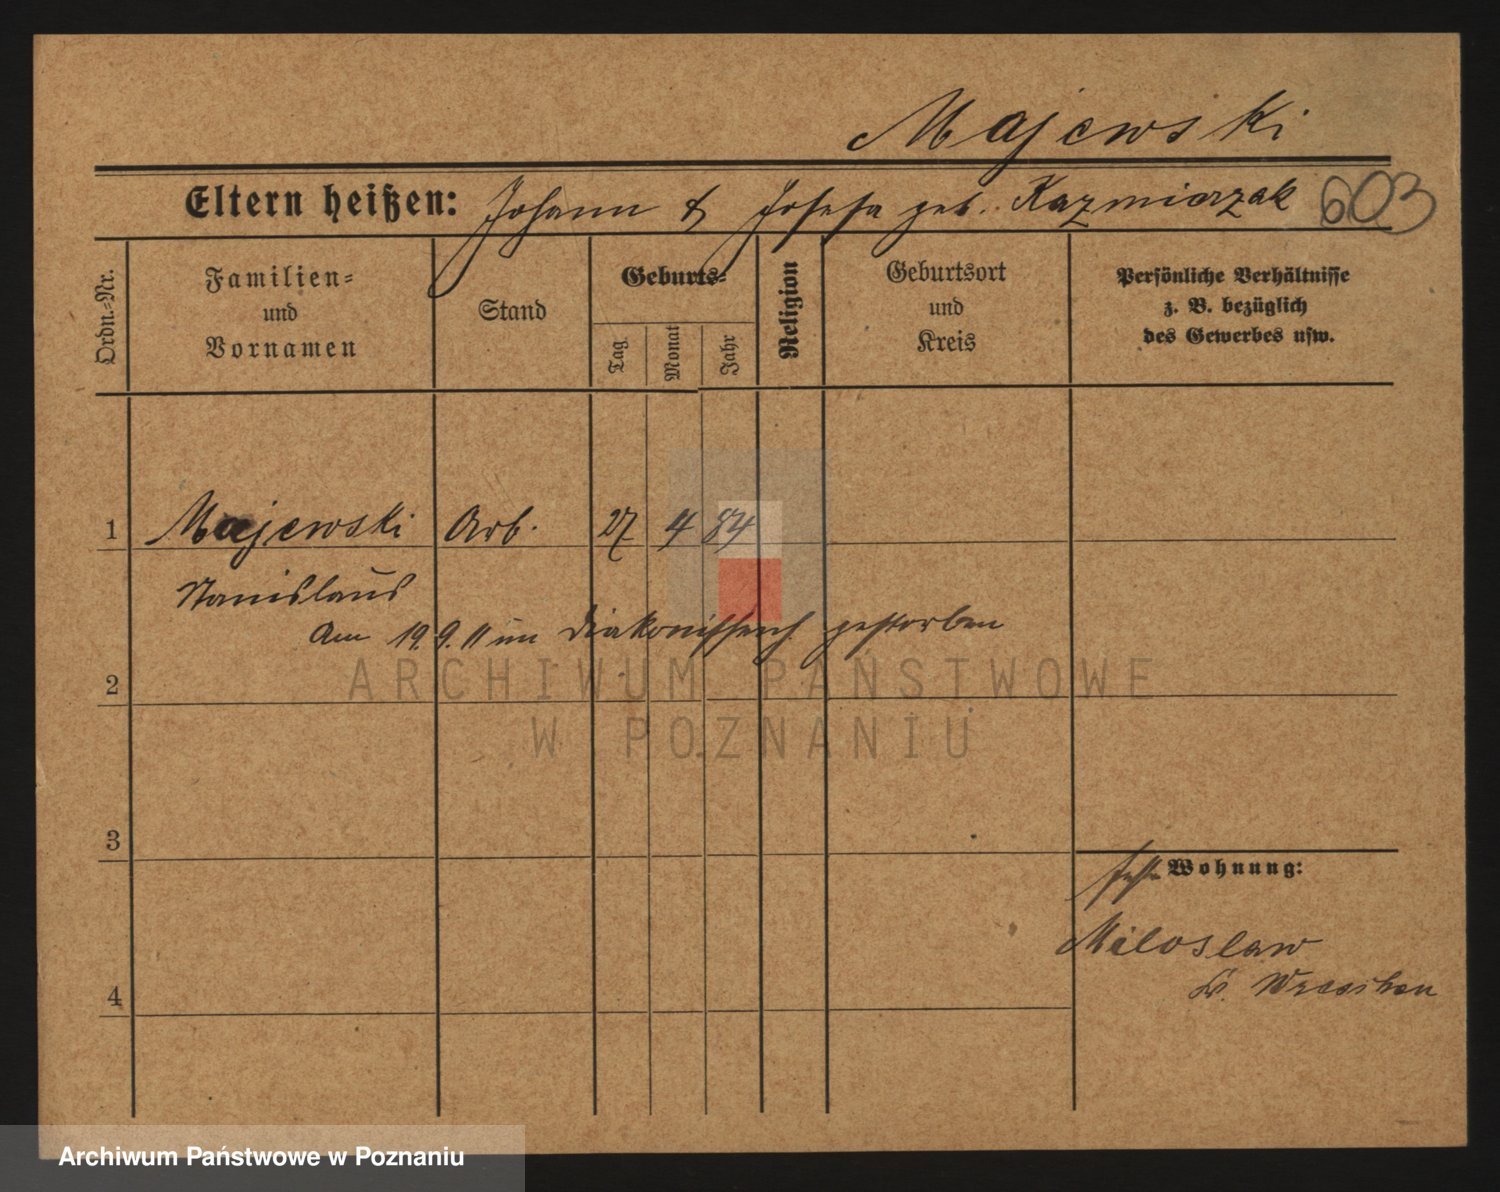 Majewski
Eltern heißen: Johann & Josefa geb. Kazmierzak 603
Ordn.-Nr.
Familien-
und
Vornamen
Stand
Geburts-
Tag
Monat
Jahr
Religion
Geburtsort
und
Kreis
Persönliche Verhältnisse
z. B. bezüglich
des Gewerbes usw.
1 Majewski Arb. 27 4 84
Stanislaus
Am 19.9.11 im Diakonissenh. gestorben
ARCHIWUM PAŃSTWOWE
W POZNANIU
2
3
Wohnung:
Miloslaw
Kr. Wreschen
4
Archiwum Państwowe w Poznaniu